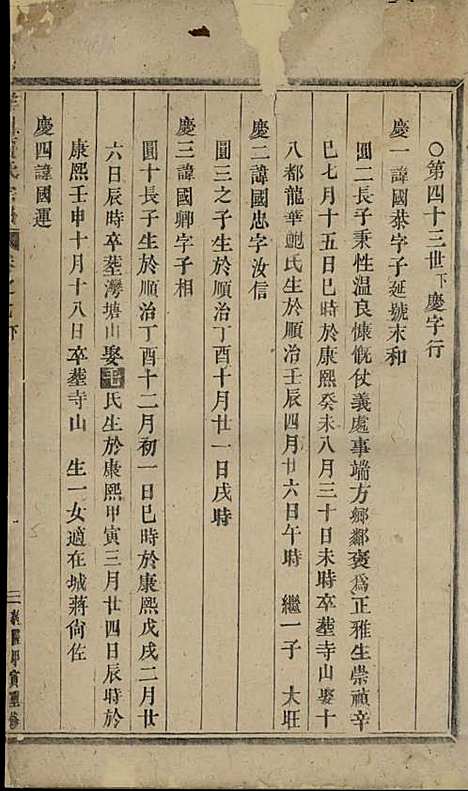 ○第四十三世下慶字行
慶一諱國恭字子延號末和
圓二長子秉性溫良慷慨仗義處事端方鄉鄰褒為正雅生崇禎辛
巳七月十五日巳時於康熙癸未八月三十日未時卒塟寺山娶十
八都龍華鮑氏生於順治壬辰四月廿六日午時 繼一子 大旺
慶二諱國忠字汝信
圓三之子生於順治丁酉十月廿一日戌時
慶三諱國卿字子相
圓十長子生於順治丁酉十二月初一日巳時於康熙戊戌二月廿
六日辰時卒塟灣塘山娶王氏生於康熙甲寅三月廿四日辰時於
康熙壬申十月十八日卒塟寺山 生一女適在城蔣尙佐
慶四諱國運